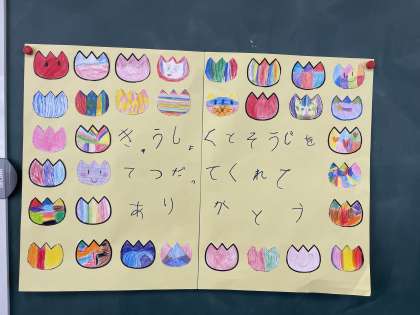 きゅうしょくとそうじを
てつだってくれて
ありがとう